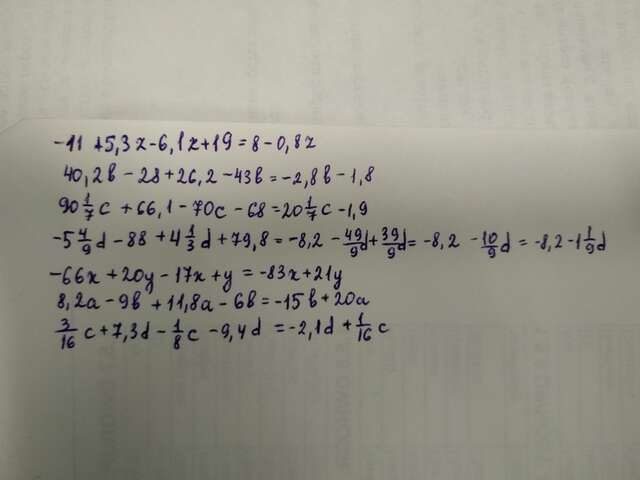 -11+5,3z-6,1z+19=8-0,8z
40,2b-28+26,2-43b=-2,8b-1,8
90 1/7 c+66,1-70c-68=20 1/7 c-1,9
-5 4/9 d-88+4 1/3 d+79,8=-8,2-49/9 d+39/9 d=-8,2-10/9 d=-8,2-1 1/9 d
-66x+20y-17x+y=-83x+21y
8,2a-9b+11,8a-6b=-15b+20a
3/16 c+7,3d-1/8 c-9,4d=-2,1d+1/16 c